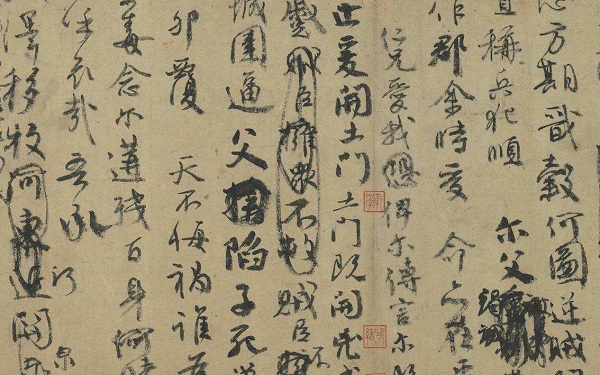 方期戩穀何圖逆賊
稱兵犯順 爾父
作郡余時受命亦在平
仁兄愛我恐俾爾傳言爾
止爰開土門土門既開兇
賊臣擁衆不救賊臣不
城圍逼父陷子死
卵覆 天不悔禍誰為
毒念爾遘殘百身何
哀哉吾承
澤移牧河東近